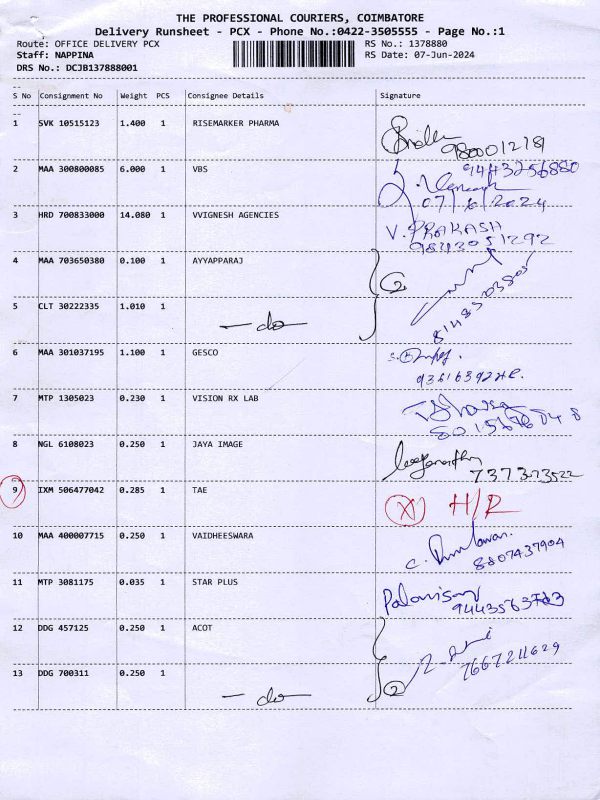 THE PROFESSIONAL COURIERS, COIMBATORE
Delivery Runsheet - PCX - Phone No.:0422-3505555 - Page No.:1
Route: OFFICE DELIVERY PCX RS No.: 1378880
Staff: NAPPINA RS Date: 07-Jun-2024
DRS No.: DCJB137888001
S No Consignment No Weight PCS Consignee Details Signature
1 SVK 10515123 1.400 1 RISEMARKER PHARMA
9800012181
2 MAA 300800085 6.000 1 VBS 9443256880
07/6/2024
3 HRD 700833000 14.080 1 VVIGNESH AGENCIES V. PRAKASH
9843051292
4 MAA 703650380 0.100 1 AYYAPPARAJ 2
5 CLT 30222335 1.010 1
- do - 8148503805
6 MAA 301037195 1.100 1 GESCO
7 MTP 1305023 0.230 1 VISION RX LAB
8 NGL 6108023 0.250 1 JAYA IMAGE
737373522
9 IXM 506477042 0.285 1 TAE X H/R
10 MAA 400007715 0.250 1 VAIDHEESWARA
8807437904
11 MTP 3081175 0.035 1 STAR PLUS Palanisamy
9443563783
12 DDG 457125 0.250 1 ACOT
7667211629
13 DDG 700311 0.250 1
- do - 2